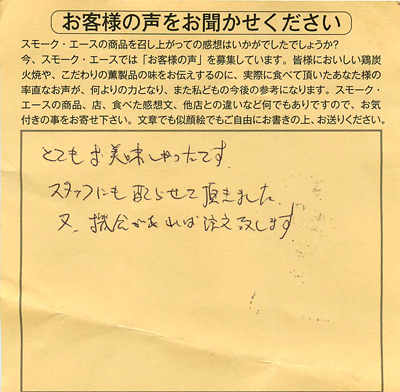 お客様の声をお聞かせください
スモーク・エースの商品を召し上がっての感想はいかがでしたでしょうか?
今、スモーク・エースでは「お客様の声」を募集しています。皆様においしい鶏炭
火焼や、こだわりの薫製品の味をお伝えするのに、実際に食べて頂いたあなた様の
率直なお声が、何よりの力となり、また私どもの今後の参考になります。スモーク・
エースの商品、店、食べた感想文、他店との違いなど何でもありですので、お気
付きの事をお寄せ下さい。文章でも似顔絵でもご自由にお書きの上、お送りください。
とてもお美味しかったです
スタッフにも配らせて頂きました
又、機会があれば注文致します